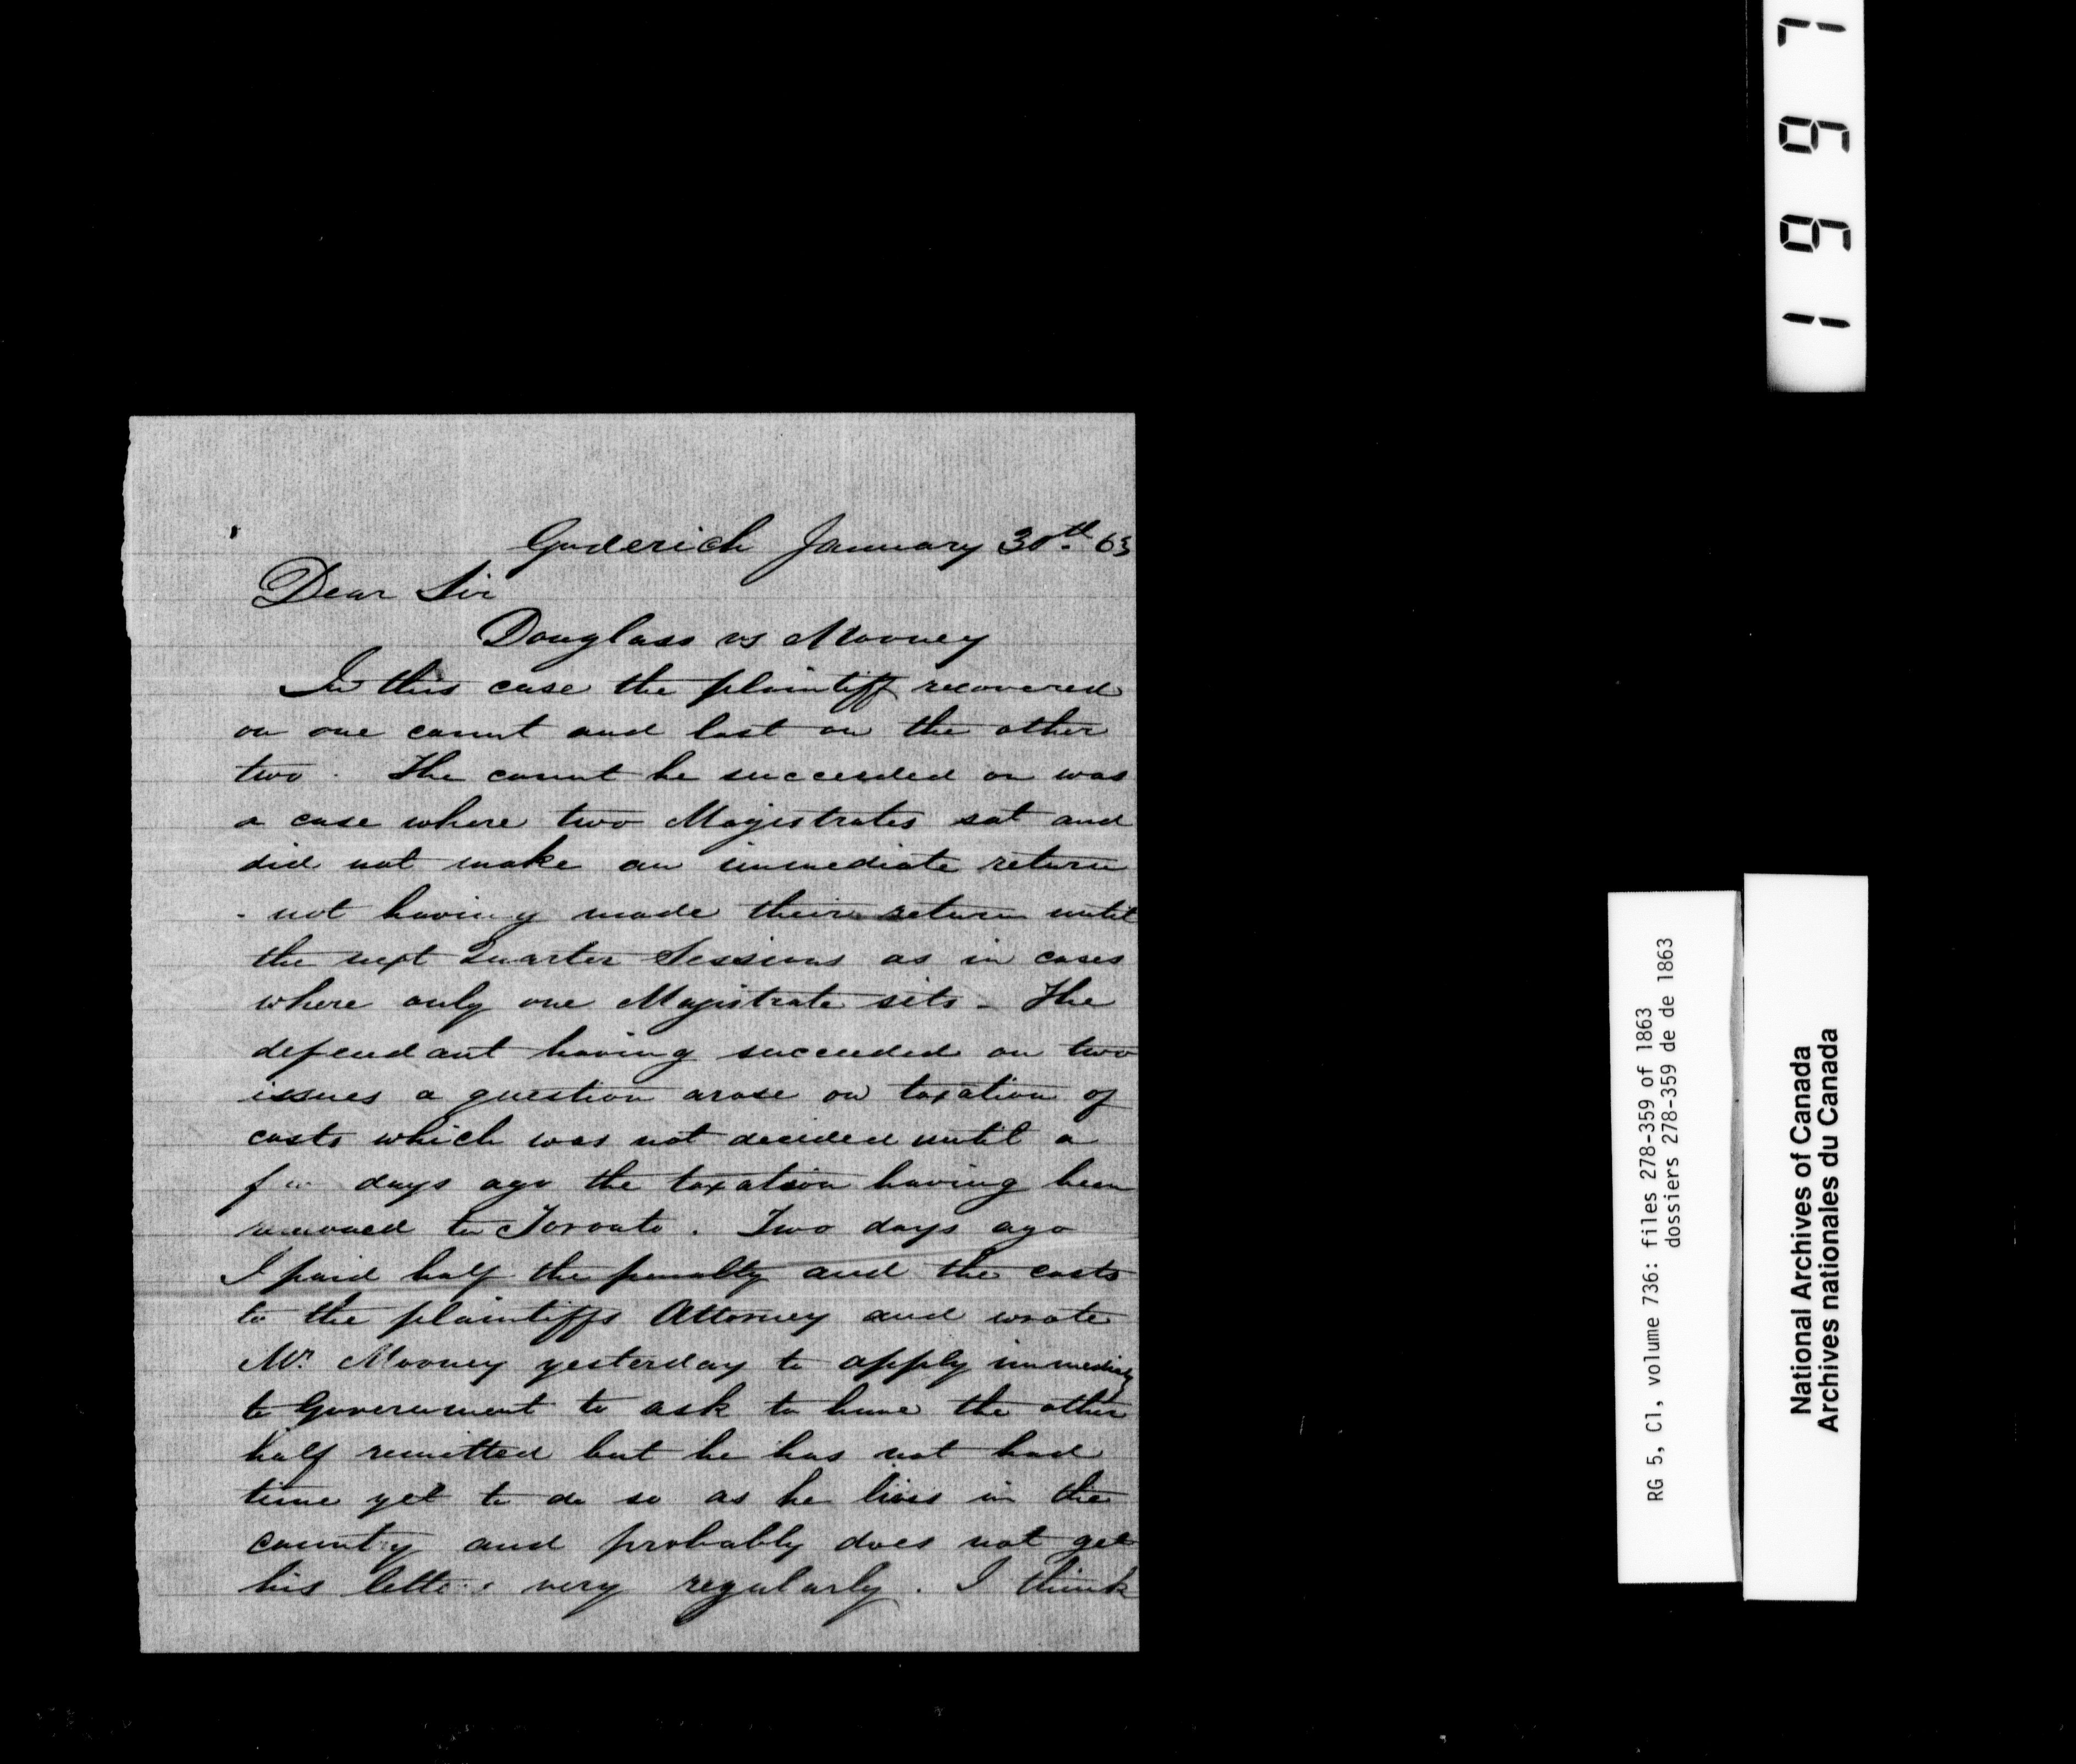 Goderich January 30th 63
Dear Sir
Douglass vs Mooney
In this case the plaintiff recovered
on one count and lost on the other
two. The count he succeeded on was
a case where two Magistrates sat and
did not make an immediate return
- not having made their return until
the next Quarter Sessions as in cases
where only one Magistrate sits - The
defendant having succeeded on two
issues a question arose on taxation of
costs which was not decided until a
few days ago the taxation having been
removed to Toronto. Two days ago
I paid half the penalty and the costs
to the plaintiffs Attorney and wrote
Mr. Mooney yesterday to apply
to Government to ask to have the other
half remitted but he has not had
time yet to do so as he lives in the
country and probably does not get
his letters very regularly. I think
19967
RG 5, C1, volume 736: files 278-359 of 1863
dossiers 278-359 de de 1863
National Archives of Canada
Archives nationales du Canada